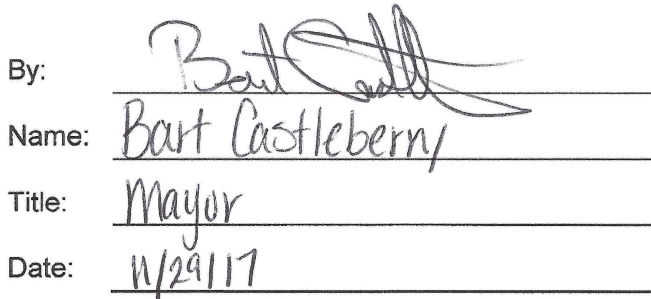 By: Bart Castleberry
Name: Bart Castleberry
Title: Mayor
Date: 11/29/17